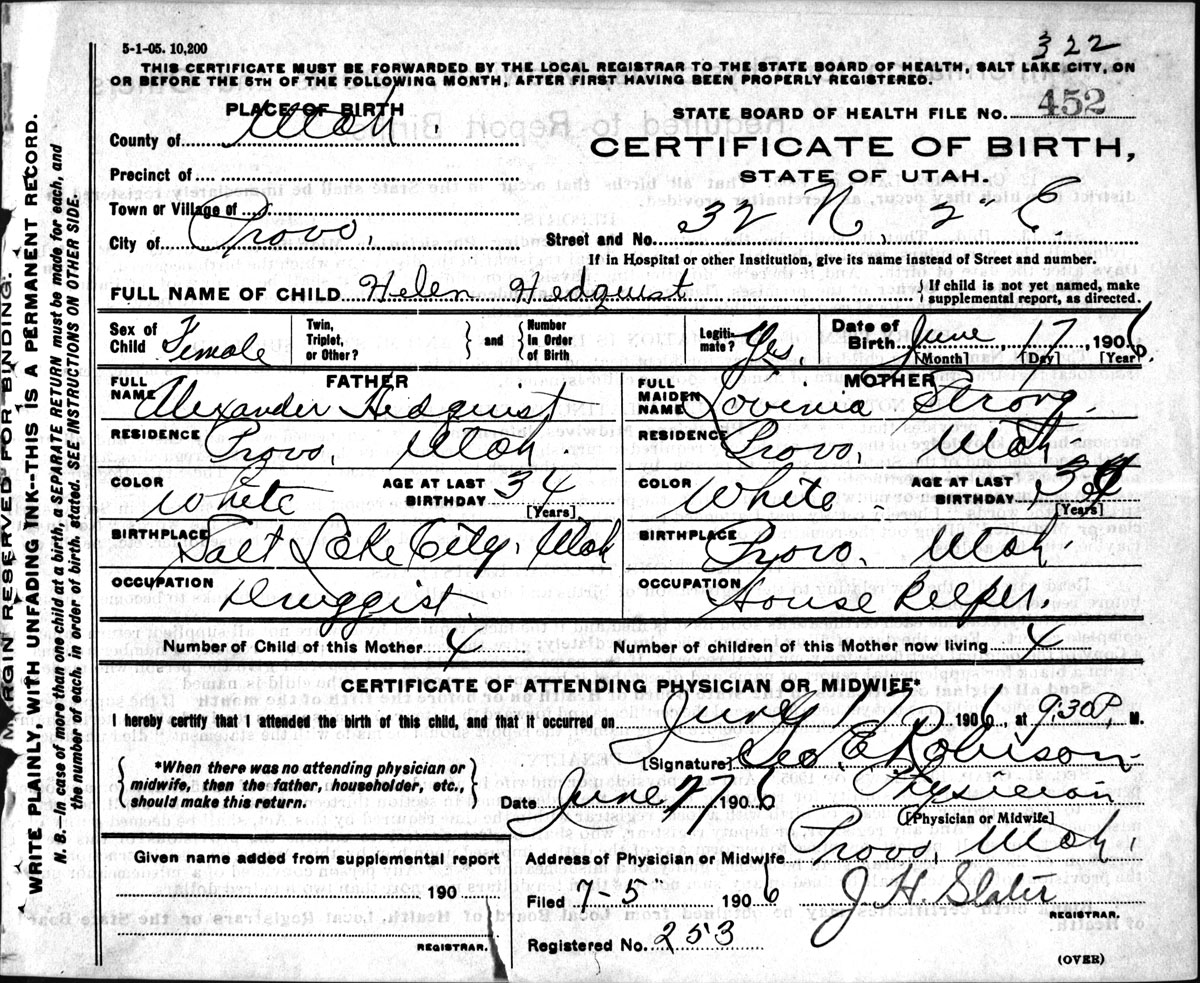 5-1-05. 10,200
322
THIS CERTIFICATE MUST BE FORWARDED BY THE LOCAL REGISTRAR TO THE STATE BOARD OF HEALTH, SALT LAKE CITY, ON
OR BEFORE THE 5TH OF THE FOLLOWING MONTH, AFTER FIRST HAVING BEEN PROPERLY REGISTERED.
PLACE OF BIRTH
STATE BOARD OF HEALTH FILE No. 452
County of Utah.
CERTIFICATE OF BIRTH,
STATE OF UTAH.
Precinct of
Town or Village of
City of Provo.
Street and No. 32 N 2" E
If in Hospital or other Institution, give its name instead of Street and number.
FULL NAME OF CHILD Helen Hedquist
If child is not yet named, make
supplemental report, as directed.
Sex of Child Female
Twin, Triplet, or Other?
and
Number In Order of Birth
Legiti-mate? Yes
Date of Birth June 17, 1906.
[Month] [Day] [Year]
FATHER
FULL NAME Alexander Hedquist
RESIDENCE Provo, Utah.
COLOR White
AGE AT LAST BIRTHDAY 34
[Years]
BIRTHPLACE Salt Lake City, Utah
OCCUPATION Druggist.
MOTHER
FULL MAIDEN NAME Lovinia Strong.
RESIDENCE Provo, Utah
COLOR White.
AGE AT LAST BIRTHDAY
[Years]
BIRTHPLACE Provo, Utah.
OCCUPATION House Keeper.
Number of Child of this Mother 4
Number of children of this Mother now living 4
CERTIFICATE OF ATTENDING PHYSICIAN OR MIDWIFE*
I hereby certify that I attended the birth of this child, and that it occurred on June 17 1906, at 9:30 P, M.
[Signature] Geo E Robison
*When there was no attending physician or
midwife, then the father, householder, etc.,
should make this return.
Date June 27 1906
Physician
[Physician or Midwife]
Given name added from supplemental report
190
REGISTRAR.
Address of Physician or Midwife Provo, Utah.
Filed 7-5 1906
J. H. Slater
REGISTRAR.
Registered No. 253
(OVER)
MARGIN RESERVED FOR BINDING.
WRITE PLAINLY, WITH UNFADING INK--THIS IS A PERMANENT RECORD.
N. B.—In case of more than one child at a birth, a SEPARATE RETURN must be made for each, and
the number of each, in order of birth, stated. SEE INSTRUCTIONS ON OTHER SIDE.